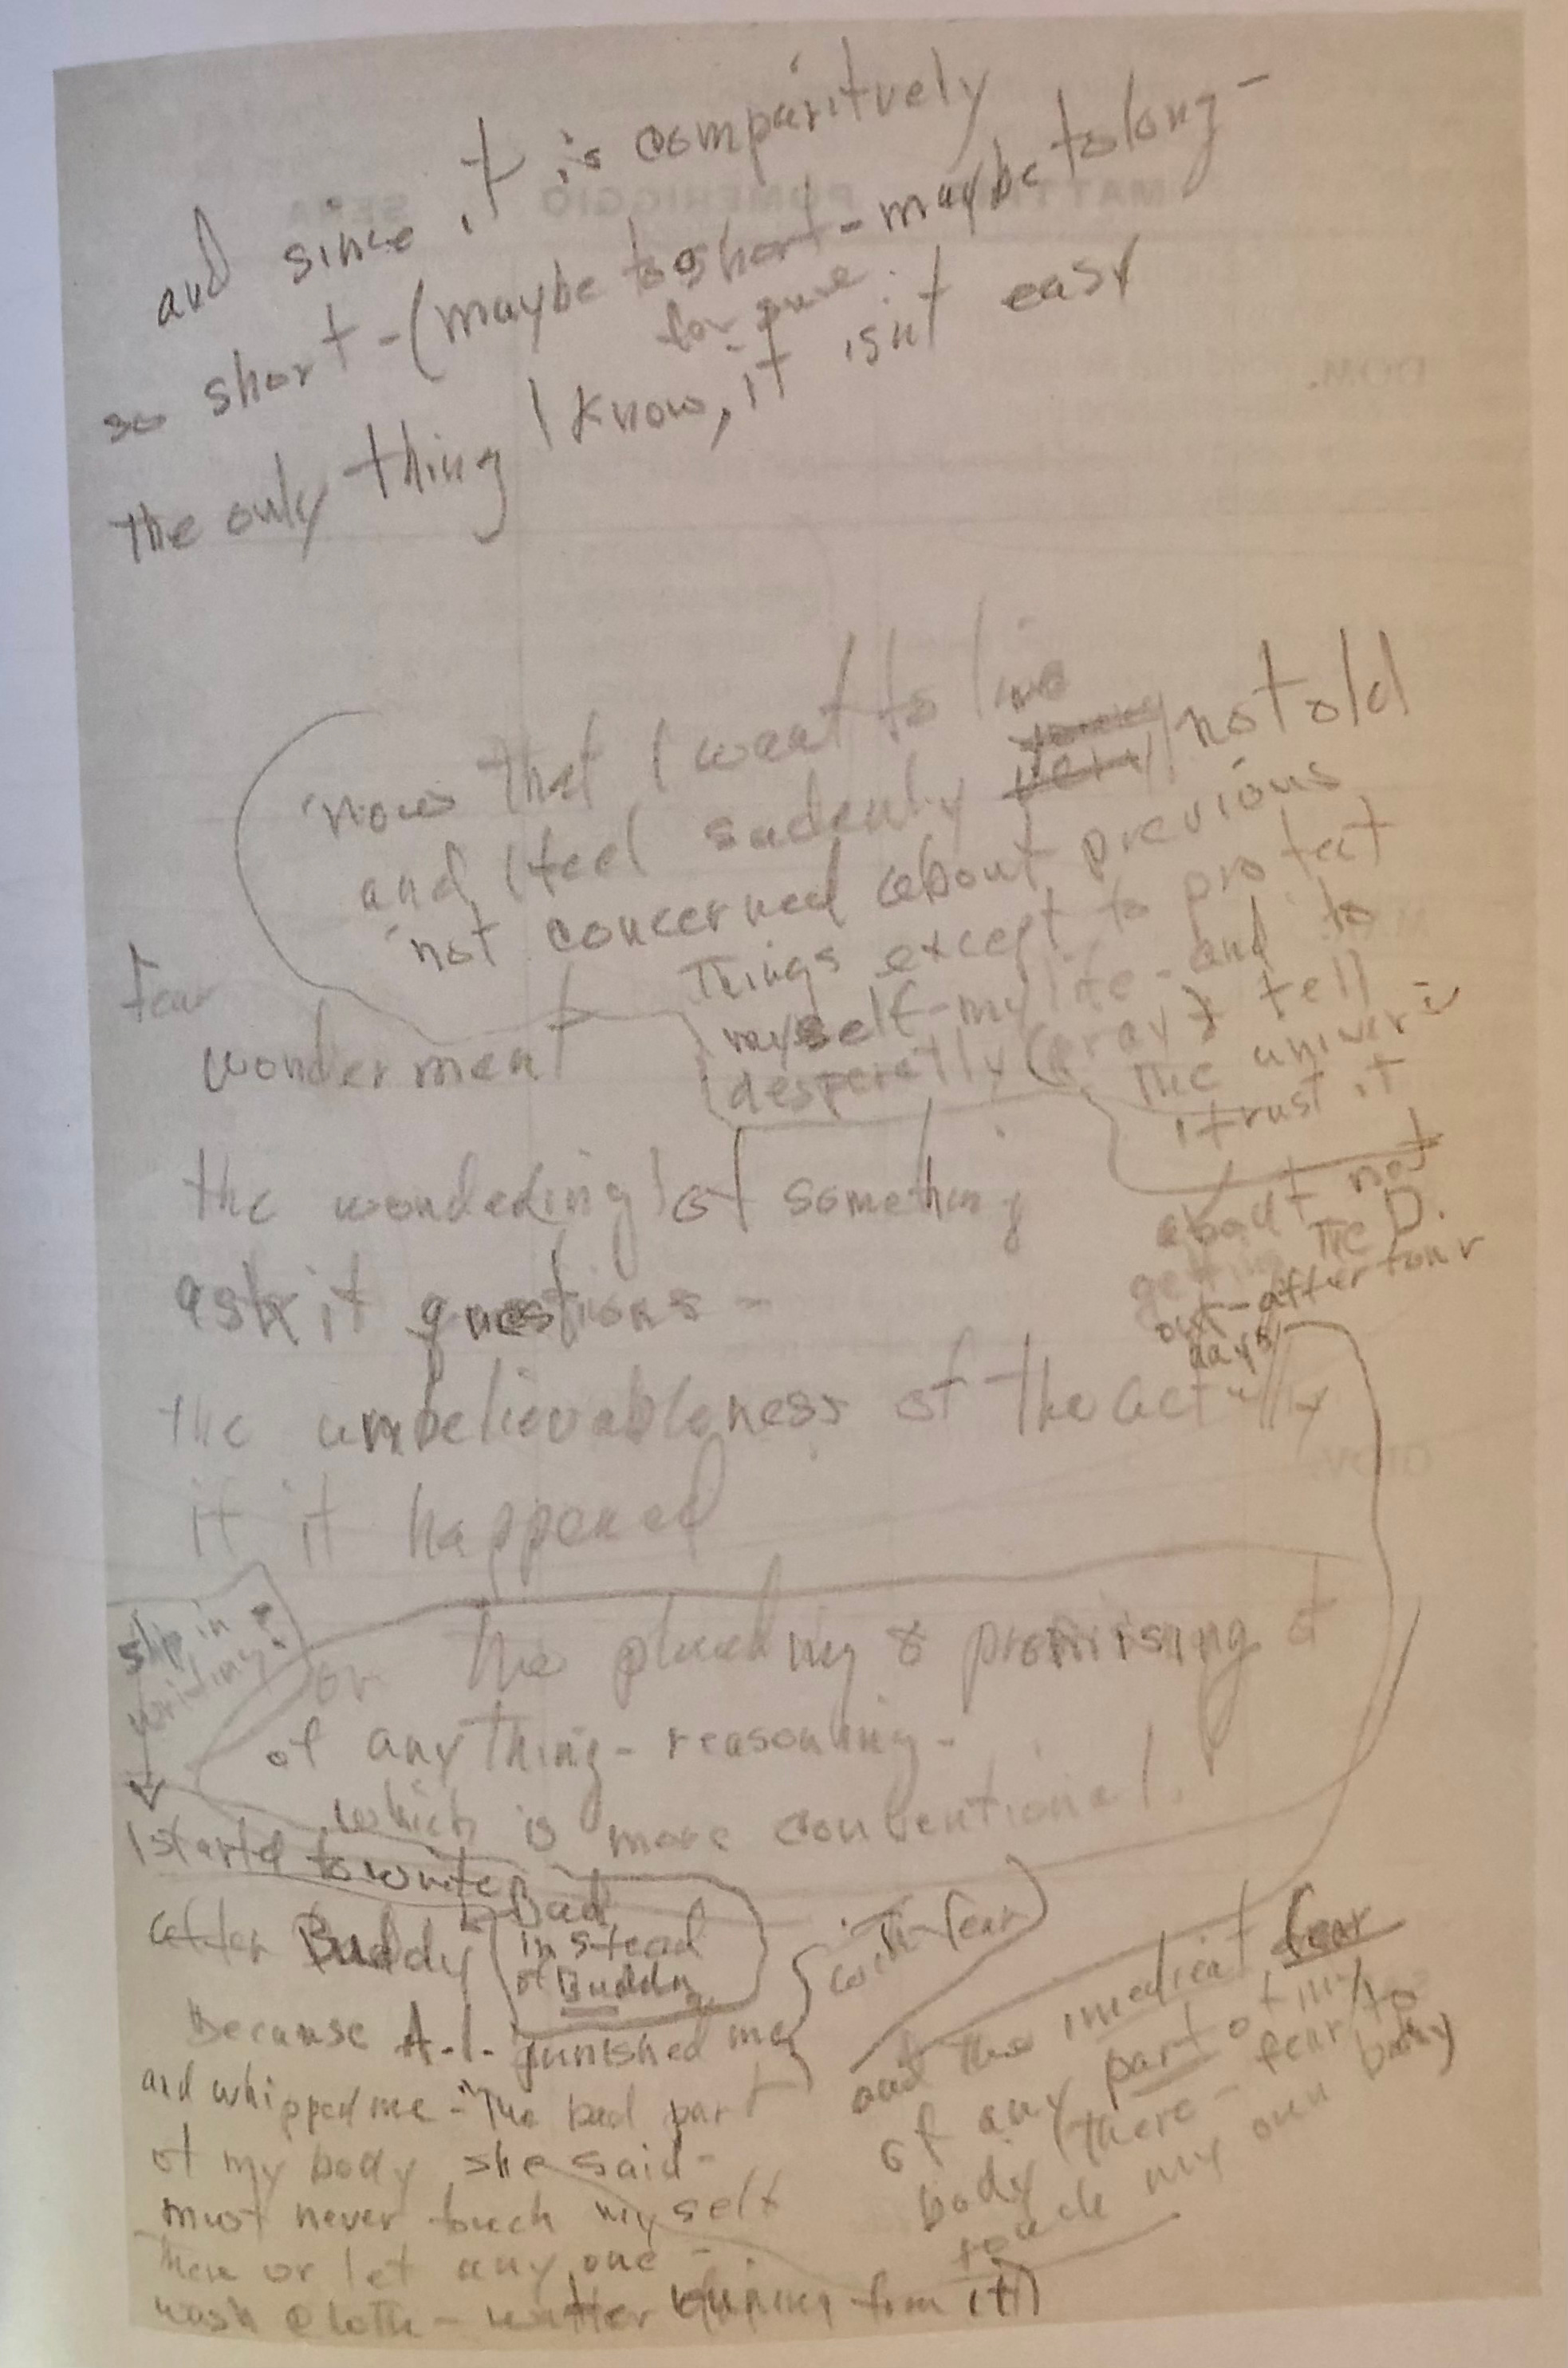 and since it is comparitvely
so short - (maybe to short - maybe to long -
for sure
The only thing I know, it isnt easy
now that I want to live
and I feel sudenly not old
not concerned about previous
Things except to protect
myself - my life - and to
desperetlly (pray) tell
the univer
I trust it
fear
wonderment
the wondering of something
ask it questions -
about not
getting the D.
out - after four
days
the unbelievableness of the actully
if it happened
slip in
writing?
or the promising of
of anything - reasonning -
which is more conventional.
I started to write
after Buddy
Bad
instead
of Buddy
Because A.I. punished me
with fear
and whipped me - "The bad part
of my body she said -
must never touch myself
there or let any one -
wash cloth - watter driping from it)
and the imediat fear
of any part of my
body (there - fear to
touch my own body